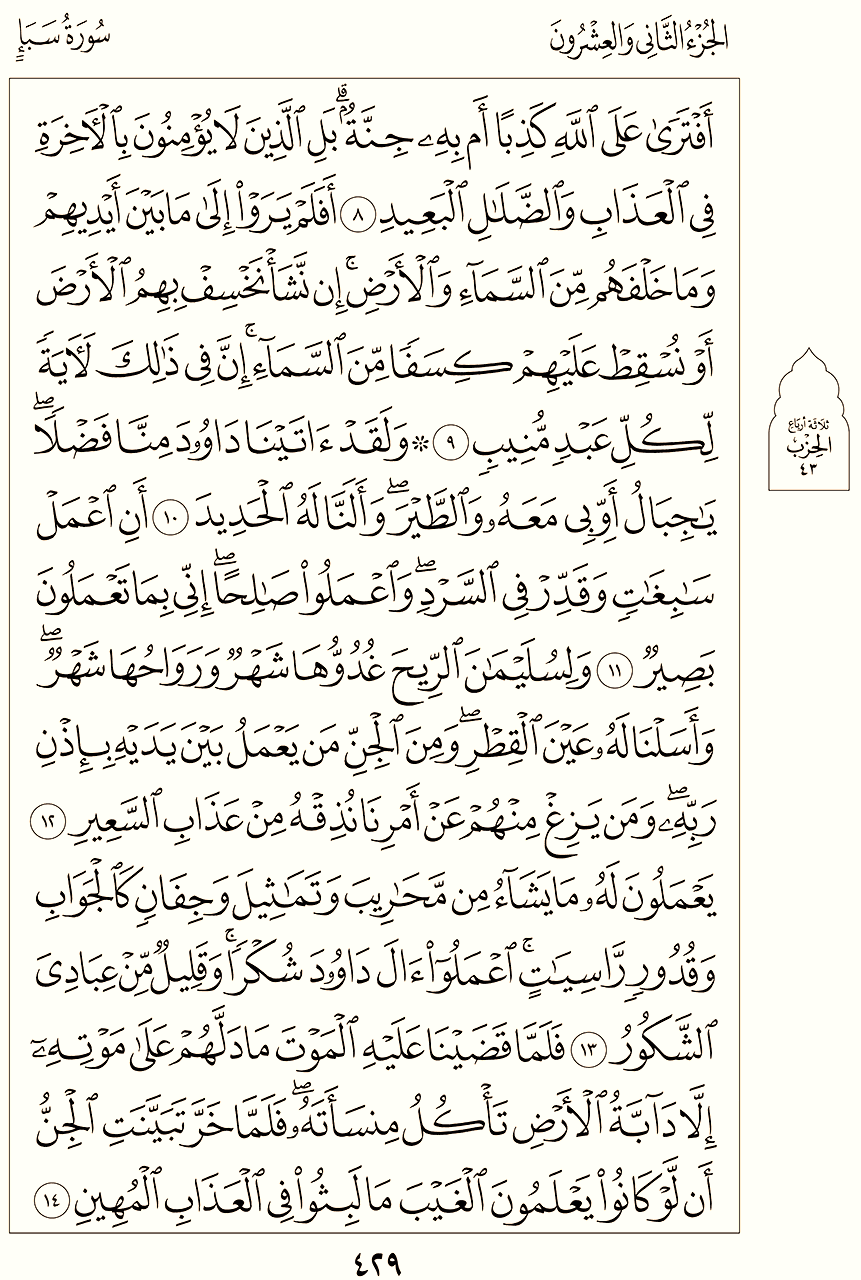 الجُزْءُ الثَّانِي وَالعِشْرُونَ
سُورَةُ سَبَإٍ
أَفْتَرَىٰ عَلَى ٱللَّهِ كَذِبًا أَم بِهِۦ جِنَّةٌۢ ۗ بَلِ ٱلَّذِينَ لَا يُؤْمِنُونَ بِٱلْـَٔاخِرَةِ
فِى ٱلْعَذَابِ وَٱلضَّلَـٰلِ ٱلْبَعِيدِ ٨ أَفَلَمْ يَرَوْا۟ إِلَىٰ مَا بَيْنَ أَيْدِيهِمْ
وَمَا خَلْفَهُم مِّنَ ٱلسَّمَآءِ وَٱلْأَرْضِ ۚ إِن نَّشَأْ نَخْسِفْ بِهِمُ ٱلْأَرْضَ
أَوْ نُسْقِطْ عَلَيْهِمْ كِسَفًا مِّنَ ٱلسَّمَآءِ ۚ إِنَّ فِى ذَٰلِكَ لَـَٔايَةً
لِّكُلِّ عَبْدٍ مُّنِيبٍ ٩ ۞ وَلَقَدْ ءَاتَيْنَا دَاوُۥدَ مِنَّا فَضْلًا ۖ
يَـٰجِبَالُ أَوِّبِى مَعَهُۥ وَٱلطَّيْرَ ۖ وَأَلَنَّا لَهُ ٱلْحَدِيدَ ١٠ أَنِ ٱعْمَلْ
سَـٰبِغَـٰتٍ وَقَدِّرْ فِى ٱلسَّرْدِ ۖ وَٱعْمَلُوا۟ صَـٰلِحًا ۖ إِنِّى بِمَا تَعْمَلُونَ
بَصِيرٌ ١١ وَلِسُلَيْمَـٰنَ ٱلرِّيحَ غُدُوُّهَا شَهْرٌ وَرَوَاحُهَا شَهْرٌ ۖ
وَأَسَلْنَا لَهُۥ عَيْنَ ٱلْقِطْرِ ۖ وَمِنَ ٱلْجِنِّ مَن يَعْمَلُ بَيْنَ يَدَيْهِ بِإِذْنِ
رَبِّهِۦ ۖ وَمَن يَزِغْ مِنْهُمْ عَنْ أَمْرِنَا نُذِقْهُ مِنْ عَذَابِ ٱلسَّعِيرِ ١٢
يَعْمَلُونَ لَهُۥ مَا يَشَآءُ مِن مَّحَـٰرِيبَ وَتَمَـٰثِيلَ وَجِفَانٍ كَٱلْجَوَابِ
وَقُدُورٍ رَّاسِيَـٰتٍ ۚ ٱعْمَلُوٓا۟ ءَالَ دَاوُۥدَ شُكْرًا ۚ وَقَلِيلٌ مِّنْ عِبَادِىَ
ٱلشَّكُورُ ١٣ فَلَمَّا قَضَيْنَا عَلَيْهِ ٱلْمَوْتَ مَا دَلَّهُمْ عَلَىٰ مَوْتِهِۦٓ
إِلَّا دَآبَّةُ ٱلْأَرْضِ تَأْكُلُ مِنسَأَتَهُۥ ۖ فَلَمَّا خَرَّ تَبَيَّنَتِ ٱلْجِنُّ
أَن لَّوْ كَانُوا۟ يَعْلَمُونَ ٱلْغَيْبَ مَا لَبِثُوا۟ فِى ٱلْعَذَابِ ٱلْمُهِينِ ١٤
ثلاثة أرباع
الحزب
٤٣
٤٢٩